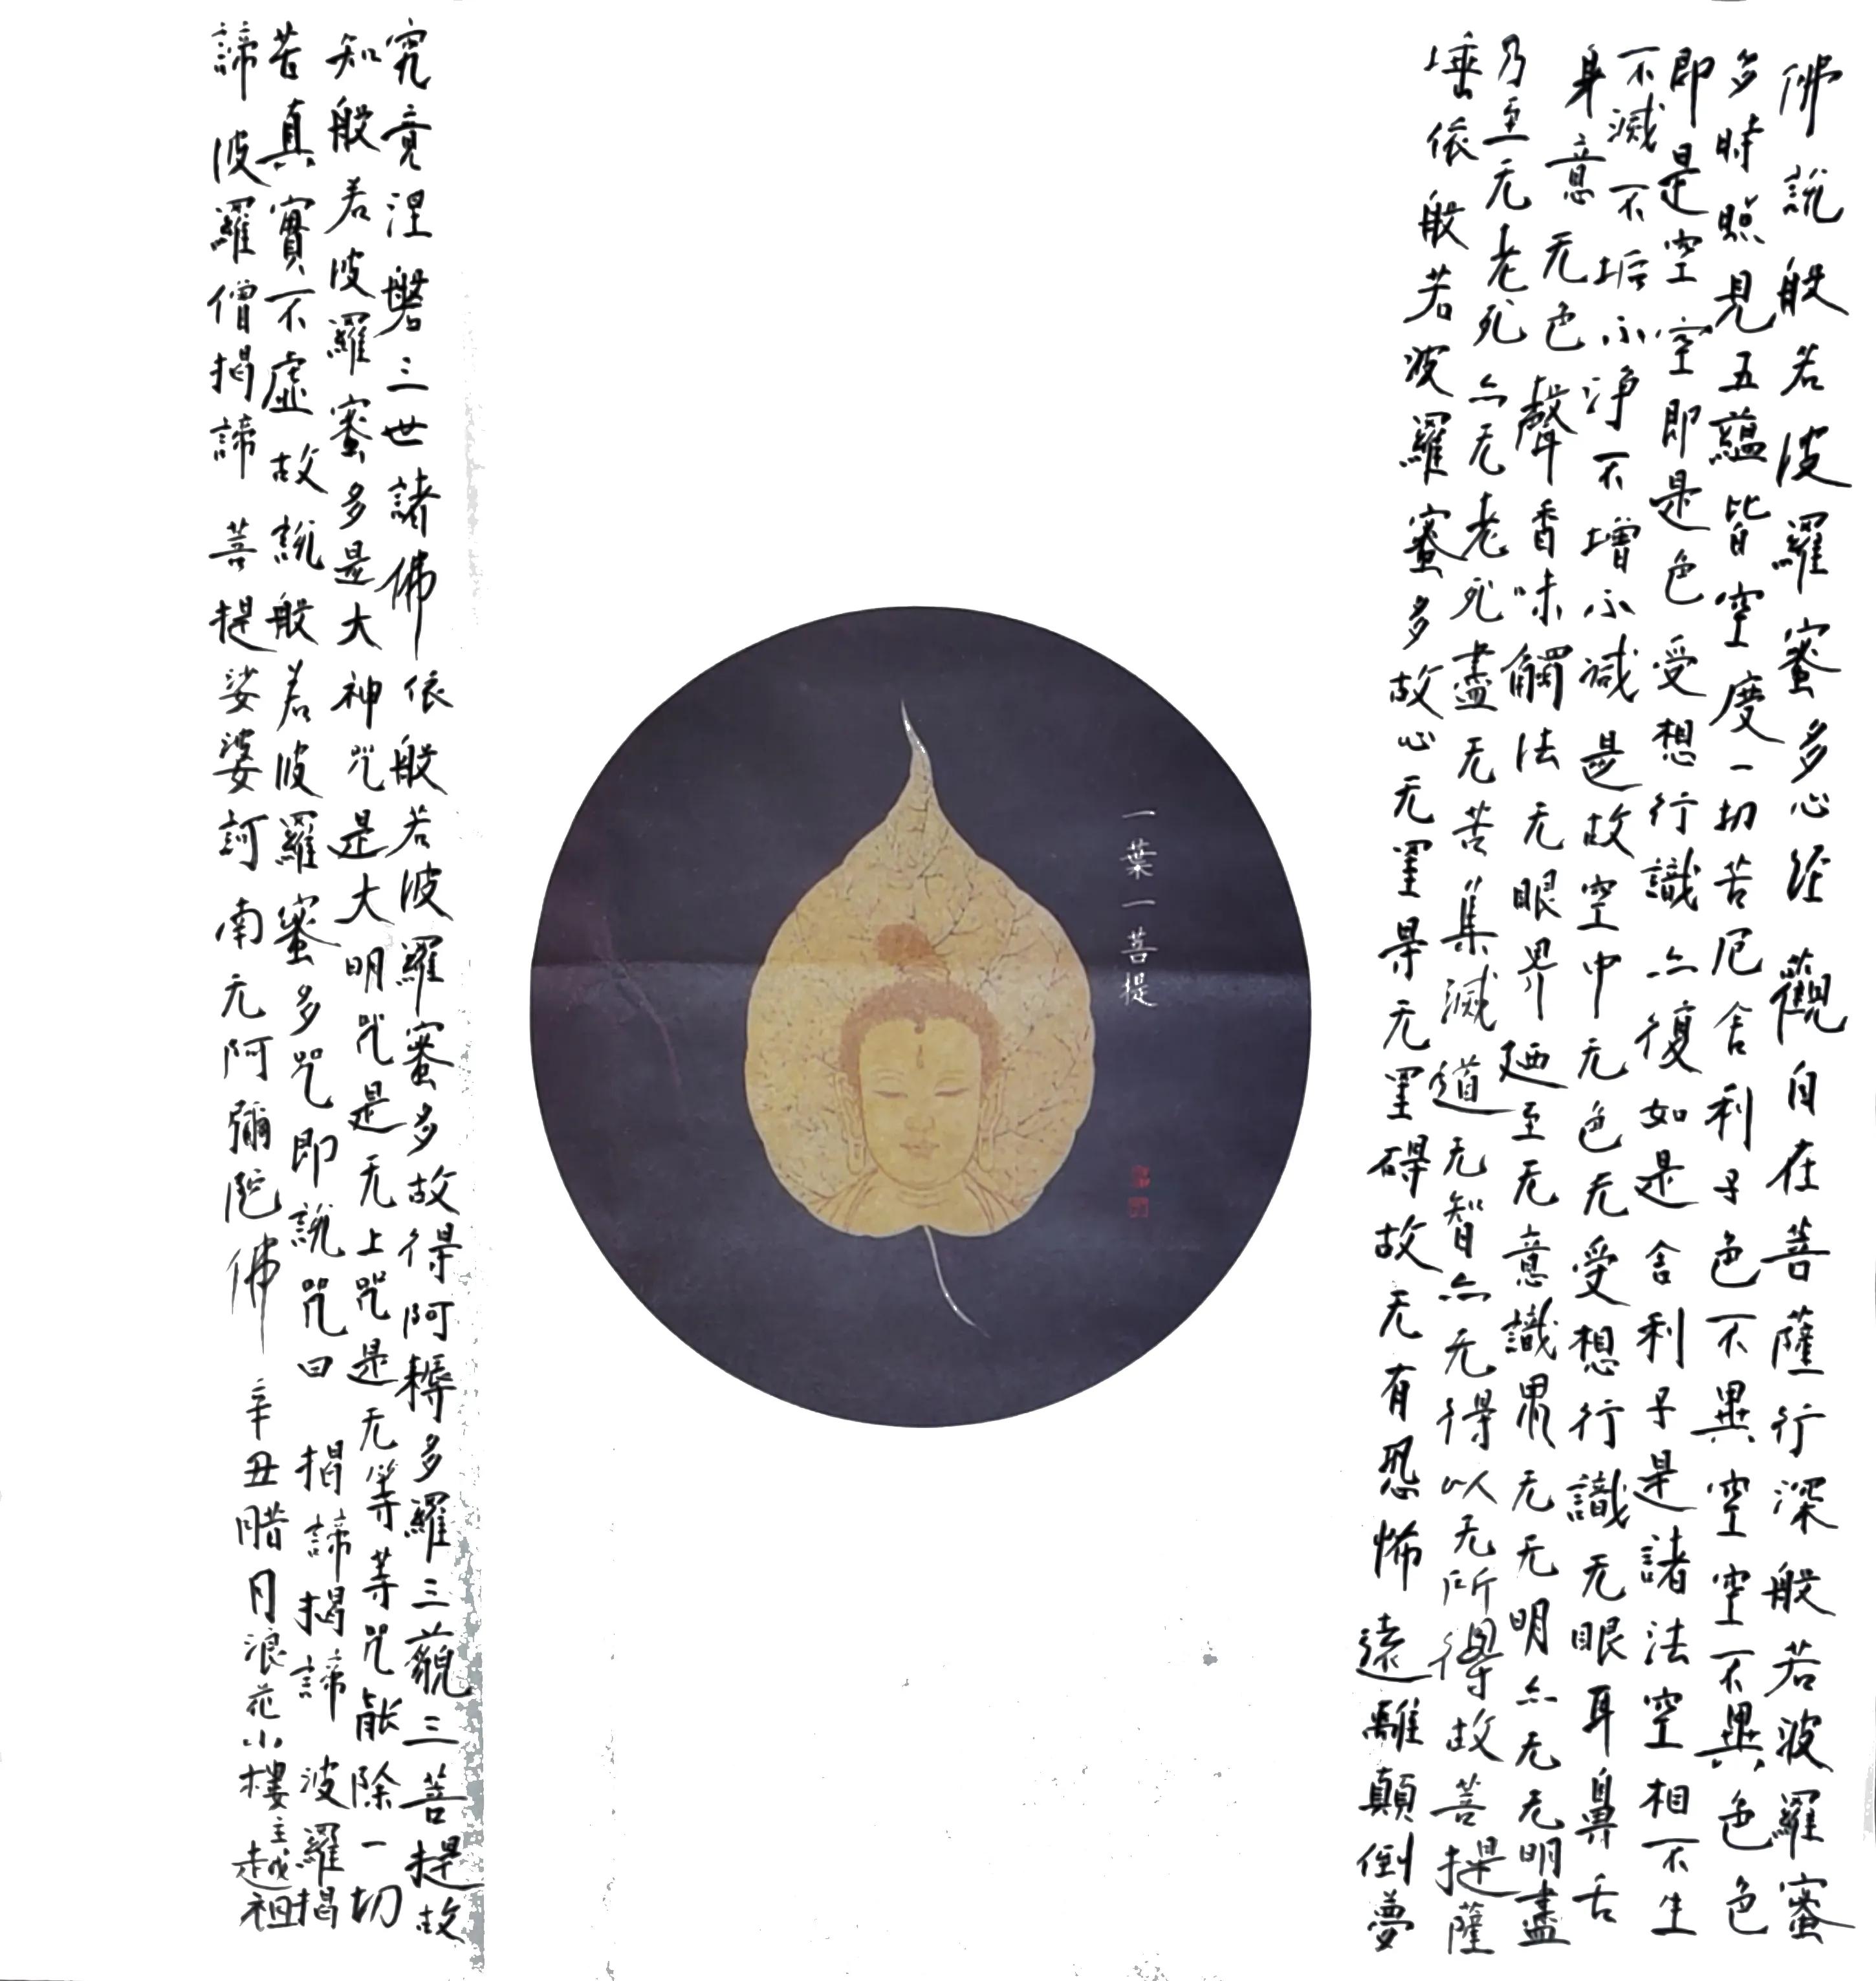 佛說般若波羅蜜多心经 觀自在菩薩行深般若波羅蜜
多時照見五蘊皆空度一切苦厄舍利子色不異空空不異色色
即是空空即是色受想行識亦復如是舍利子是諸法空相不生
不滅不垢不净不增不减是故空中无色无受想行識无眼耳鼻舌
身意无色聲香味觸法无眼界廼至无意識界无无明亦无无明盡
乃至无老死亦无老死盡无苦集滅道无智亦无得以无所得故菩提薩
埵依般若波羅蜜多故心无罣㝵无罣碍故无有恐怖遠離顛倒夢
一葉一菩提
究竟涅槃三世諸佛依般若波羅蜜多故得阿耨多羅三藐三菩提故
知般若波羅蜜多是大神咒是大明咒是无上咒是无等等咒能除一切
苦真實不虛故説般若波羅蜜多咒即說咒曰 揭諦揭諦 波羅揭
諦 波羅僧揭諦 菩提娑婆訶 南无阿彌陀佛 辛丑腊月浪花小樓主越祖